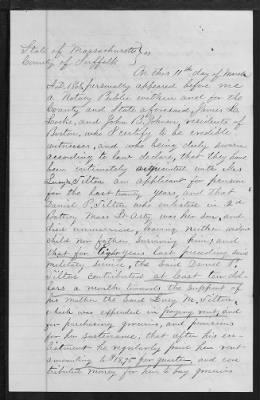 State of Massachusetts } ss
County of Suffolk }
On this 11th day of March
A.D. personally appeared before me
a Notary Public within and for the
County and State aforesaid, James H.
Locke, and John B. residents of
Boston, who I certify to be credible
witnesses, and who being duly sworn
according to law declare, that they have
been intimately acquainted with Mrs
Lucy Tilton an applicant for pension
for the last years, and that
Daniel P. Tilton who enlisted in 2d
Battery Mass Lt Arty was her son, and
died unmarried, leaving neither widow
child nor father surviving him; and
that for eight years last preceding his
military service the said Daniel P.
Tilton contributed at least ten dol-
lars a month towards the support of
his mother the said Lucy M. Tilton,
which was expended in paying rent, and
for purchasing groceries, and provisions
for her sustenance, that after his en-
listment he regularly paid her rent
amounting to $18.75 per quarter and con-
tributed money for her to buy groceries